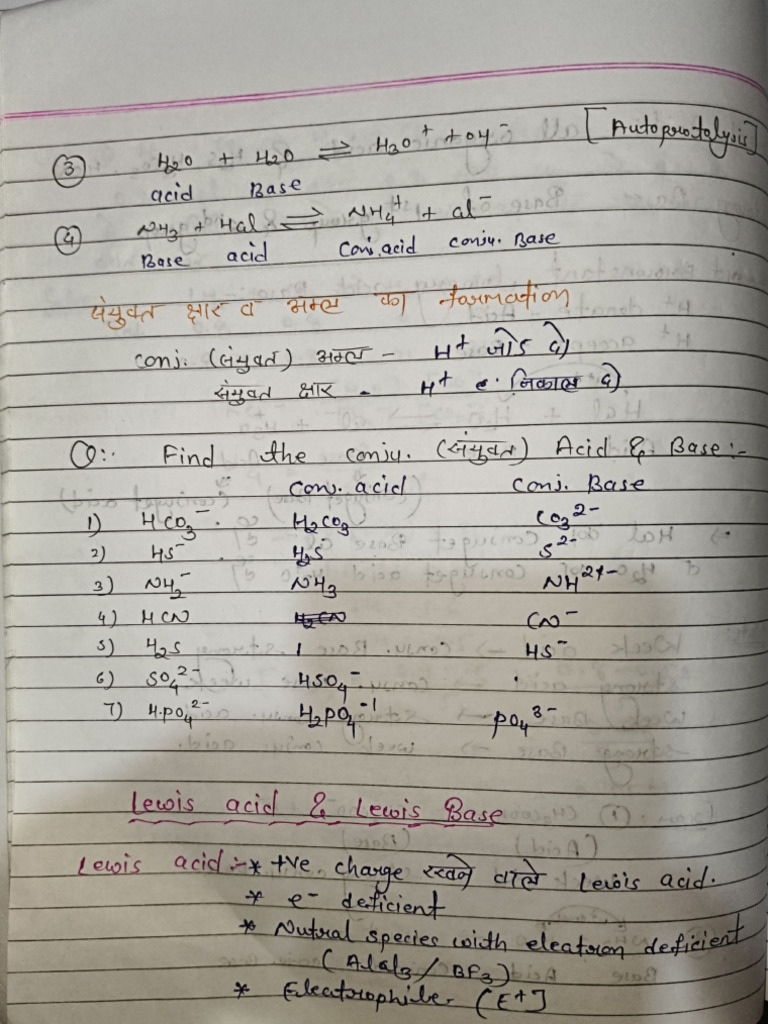 ③ H2O + H2O ⇌ H3O+ + OH- [Autoprotolysis]
acid Base
④ NH3 + Hcl ⇌ NH4+ + cl-
Base acid Conj. acid conju. Base
संयुक्त क्षार व अम्ल का formation
conj. (संयुक्त) अम्ल - H+ जोड दो
संयुक्त क्षार - H+ निकाल दो
Q:- Find the conju. (संयुक्त) Acid & Base:-
conj. acid Conj. Base
1) HCO3- H2CO3 CO3 2-
2) HS- H2S S2-
3) NH2- NH3 NH2-
4) HCN H2CN CN-
5) H2S HS-
6) SO4 2- HSO4-
7) HPO4 2- H2PO4 -1 PO4 3-
Lewis acid & Lewis Base
Lewis acid:- * +ve charge रखने वाले Lewis acid.
* e- deficient
* Nutral species with electron deficient
(Alcl3 / BF3)
* Electrophile. (E+]